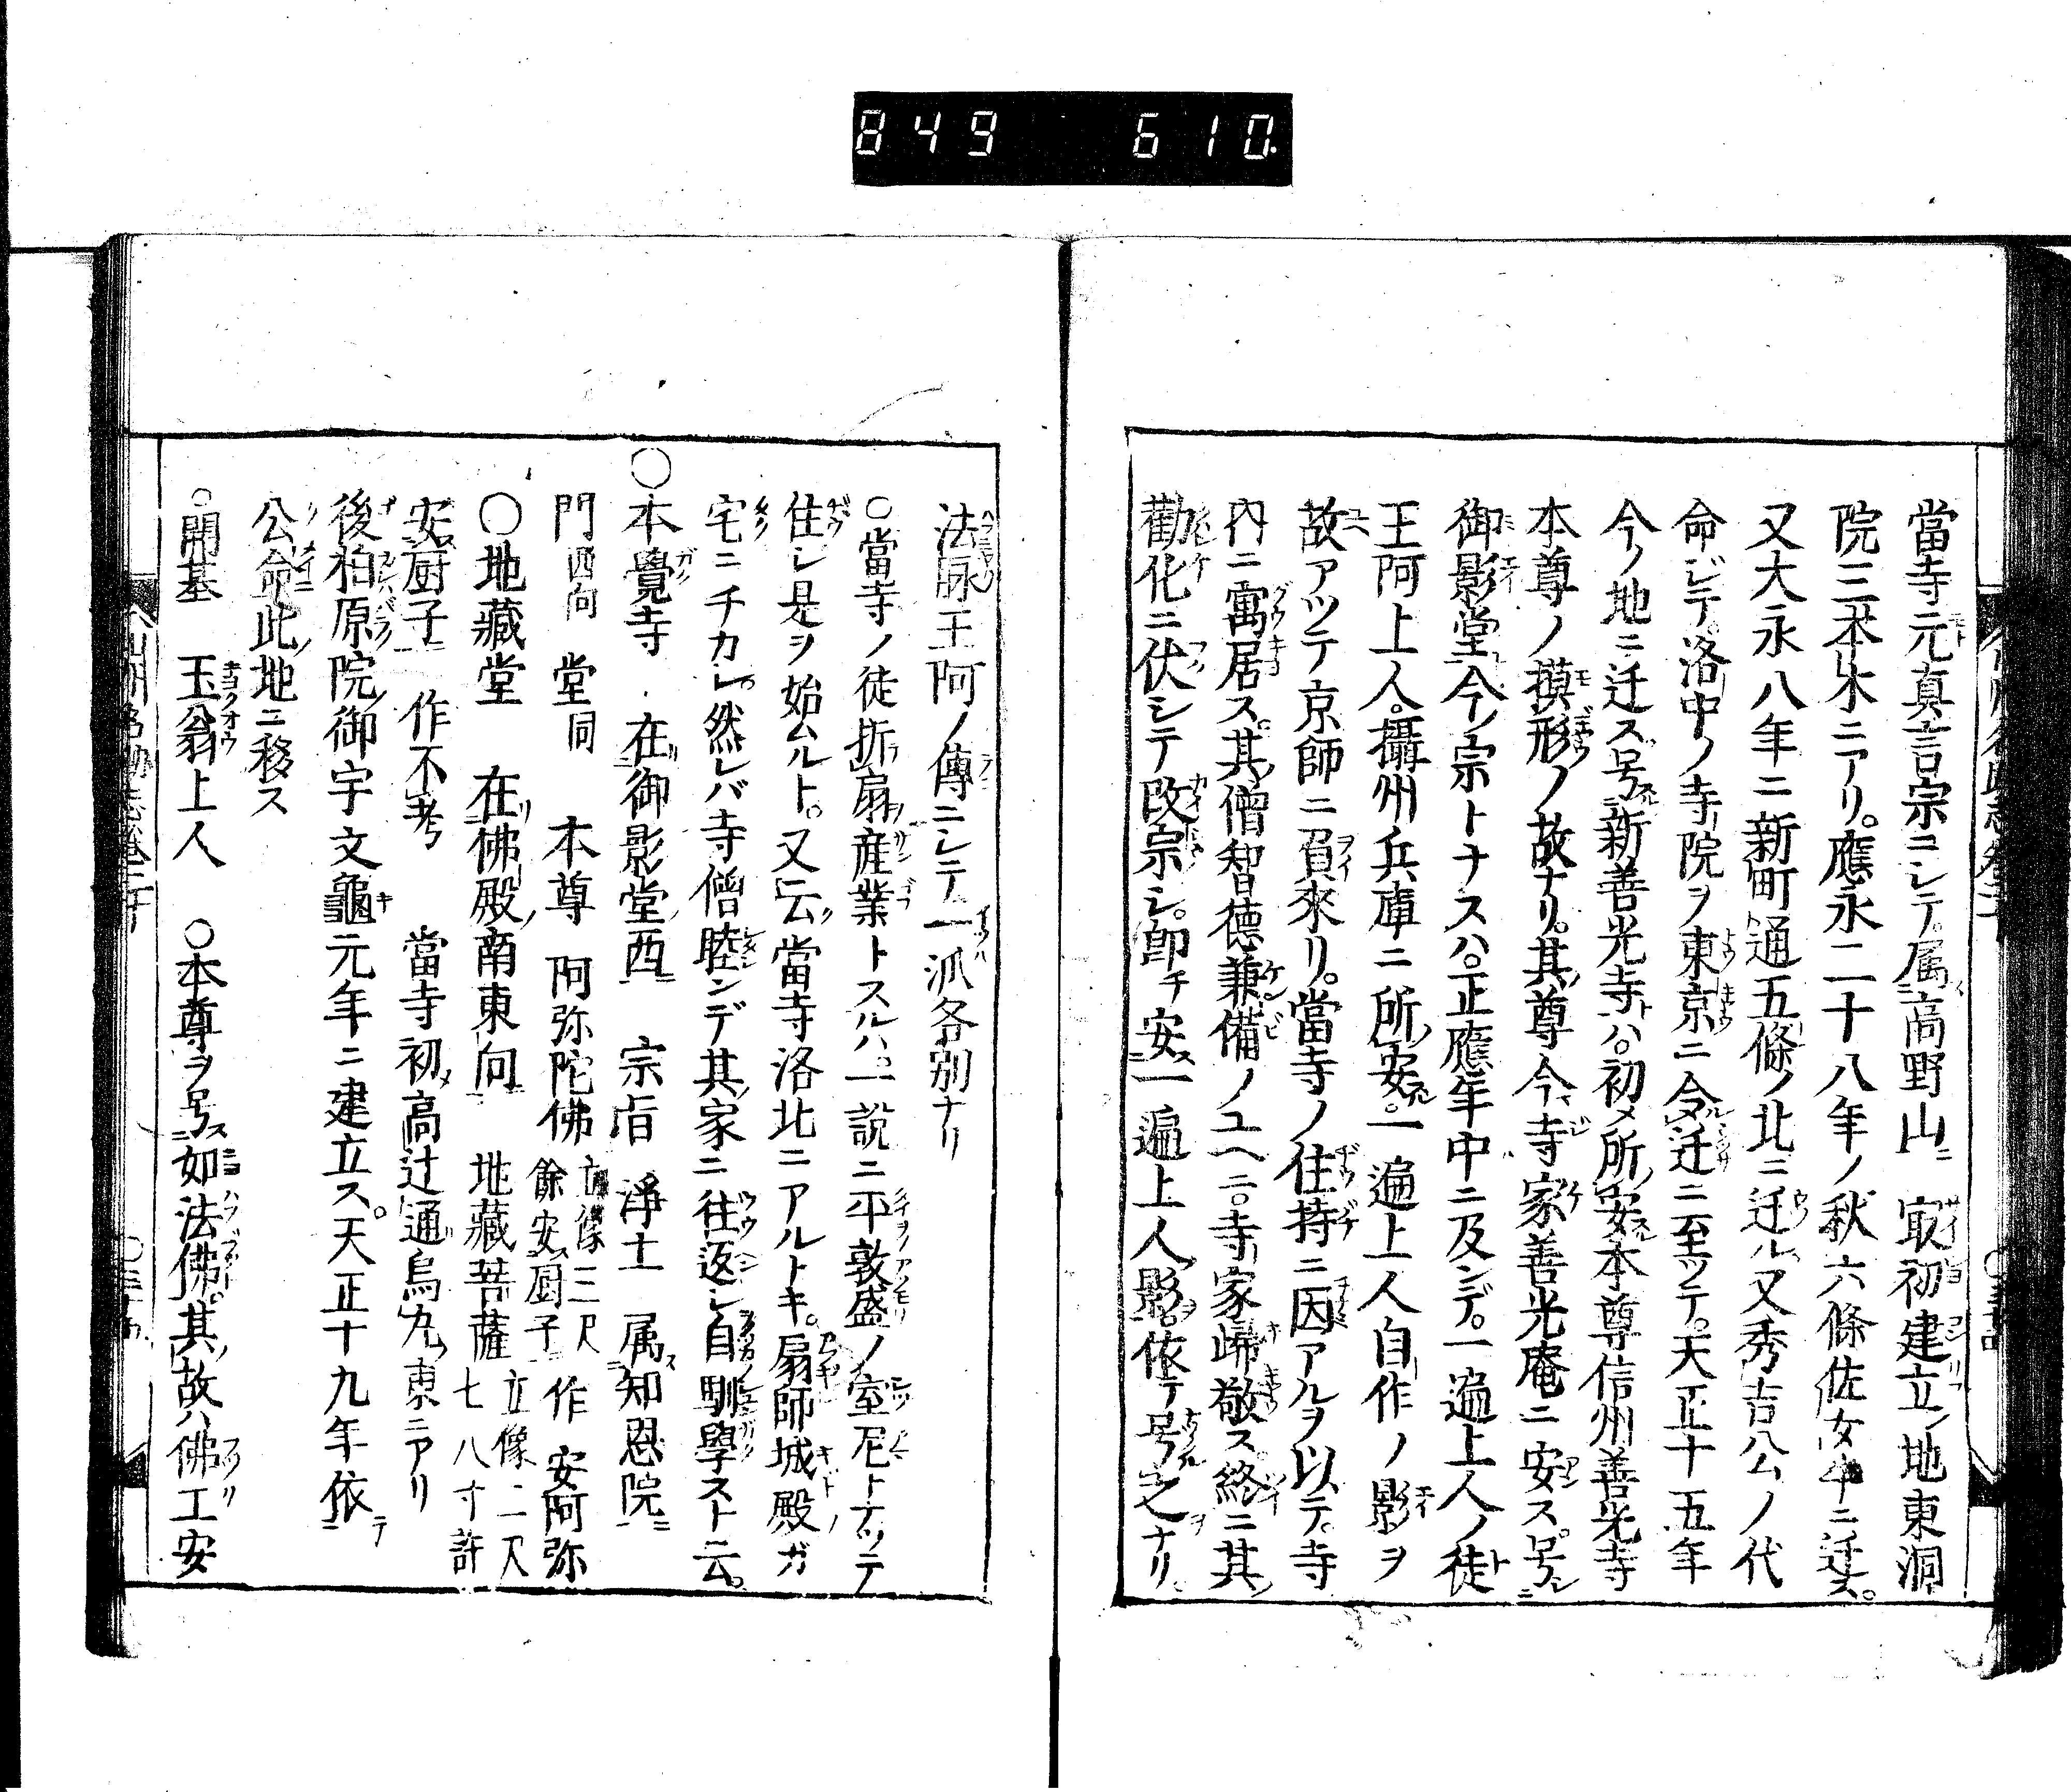 849 610.
當寺元真言宗ニシテ。属高野山ニ 㝡初建立ノ地東洞
院三本木ニアリ。應永二十八年ノ秋六條佐女牛ニ迁ス。
又大永八年ニ新町通五條ノ北ニ迁ル又秀吉公ノ代
命ジテ。洛中ノ寺院ヲ東京ニ令迁ニ至ツテ。天正十五年
今ノ地ニ迁ス号新善光寺トハ。初メ所安本尊信州善光寺
本尊ノ摸形ノ故ナリ。其尊今寺家善光庵ニ安ス。号
御影堂今ノ宗トナスハ。正應年中ニ及ンデ。一遍上人ノ徒
王阿上人。攝州兵庫ニ所安。一遍上人自作ノ影ヲ
故アツテ京師ニ負來リ。當寺ノ住持ニ因アルヲ以テ。寺
内ニ寓居ス。其僧智德兼備ノユヘニ。寺家歸敬ス。終ニ其
勸化ニ伏シテ改宗シ。即チ安一遍上人影。依テ号之ナリ。
法脉王阿ノ傳ニシテ一派各別ナリ
○當寺ノ徒折扇産業トスルハ。一說ニ平敦盛ノ室尼トナツテ
住シ是ヲ始ムルト。又云當寺洛北ニアルトキ。扇師城殿ガ
宅ニチカシ。然レバ寺僧睦ンデ其家ニ往返シ自馴學スト云。
○本覺寺 在御影堂西 宗旨 淨土 属知恩院
門西向 堂同 本尊 阿弥陀佛 立像三尺餘安厨子 作 安阿弥
○地藏堂 在佛殿南東向 地藏菩薩 立像二尺七八寸許
安厨子 作不考 當寺初高辻通烏丸東ニアリ
後柏原院御宇文龜元年ニ建立ス。天正十九年依
公命此地ニ移ス
○開基 玉翁上人 ○本尊ヲ号如法佛。其故ハ佛工安